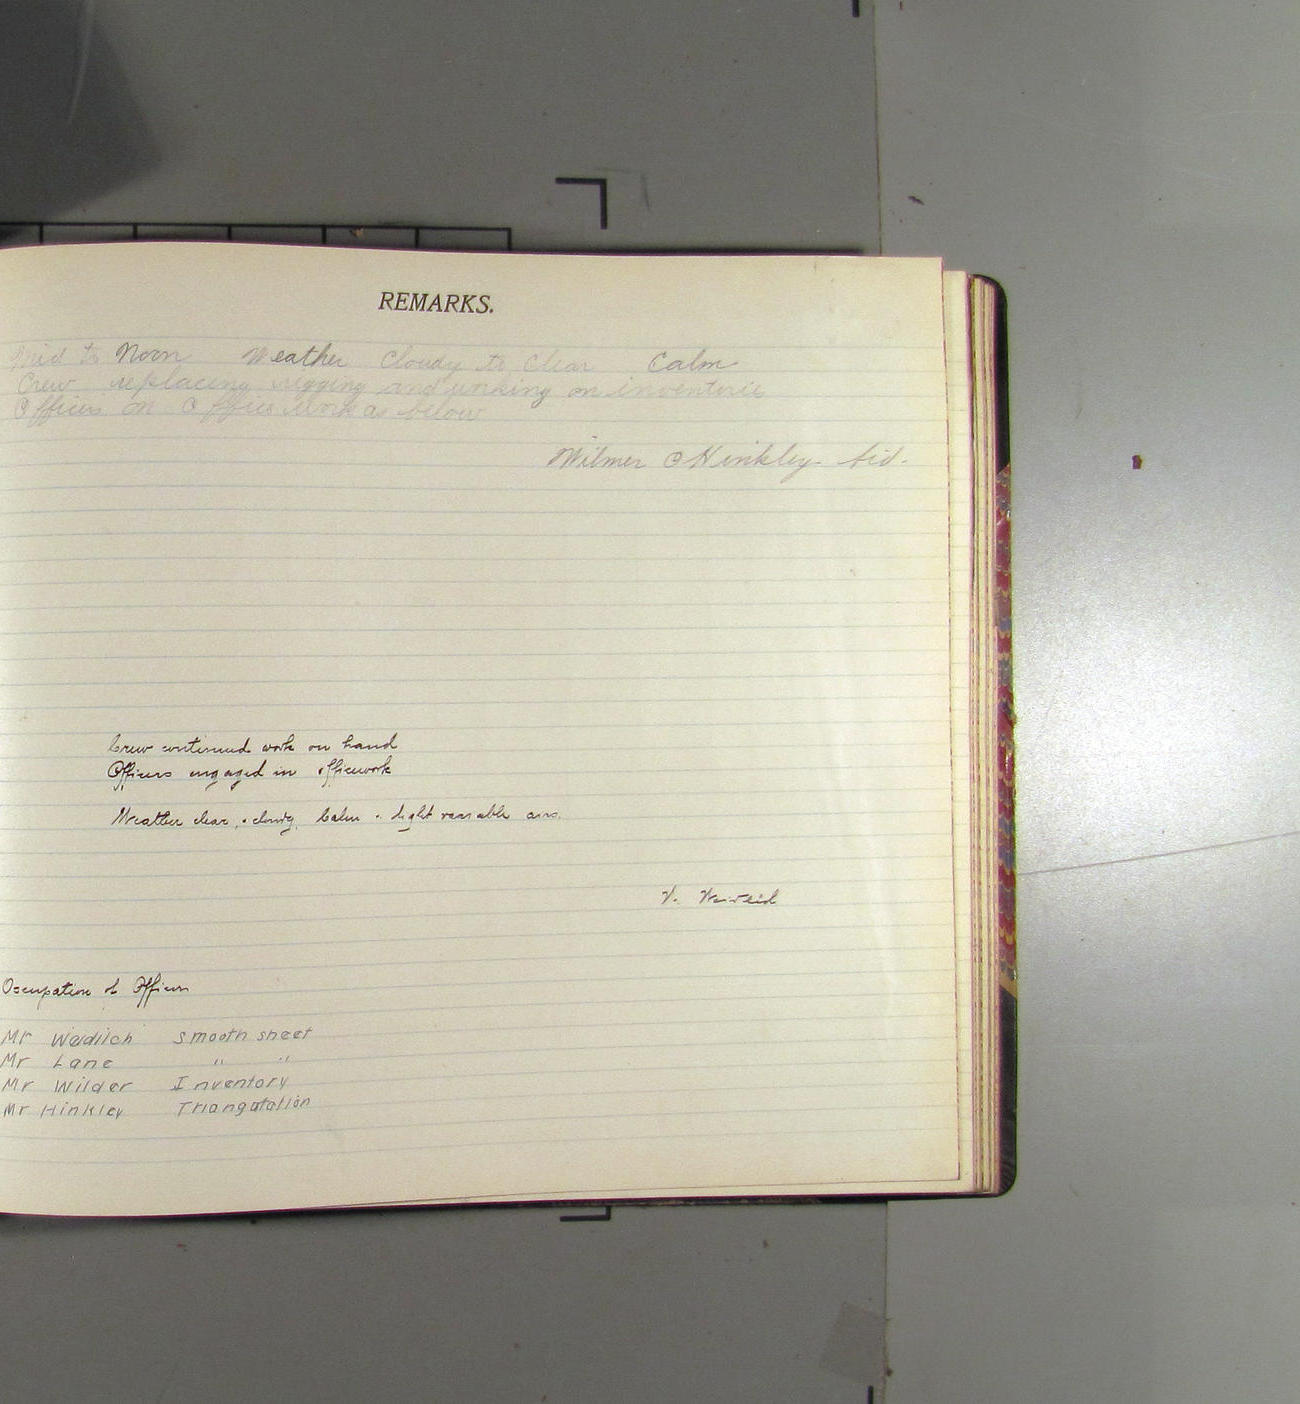 REMARKS.
Mid to Noon Weather Cloudy to Clear Calm
Crew replacing rigging and working on inventorie
Officers on Office Work as below
Wilmer O Hinkley Aid.
Crew continued work on hand
Officers engaged in officework
Weather clear - cloudy. Calm - light variable airs.
V.
Occupation of Officers
Mr Weidlich Smooth sheet
Mr Lane " "
Mr Wilder Inventory
Mr Hinkley Triangulation